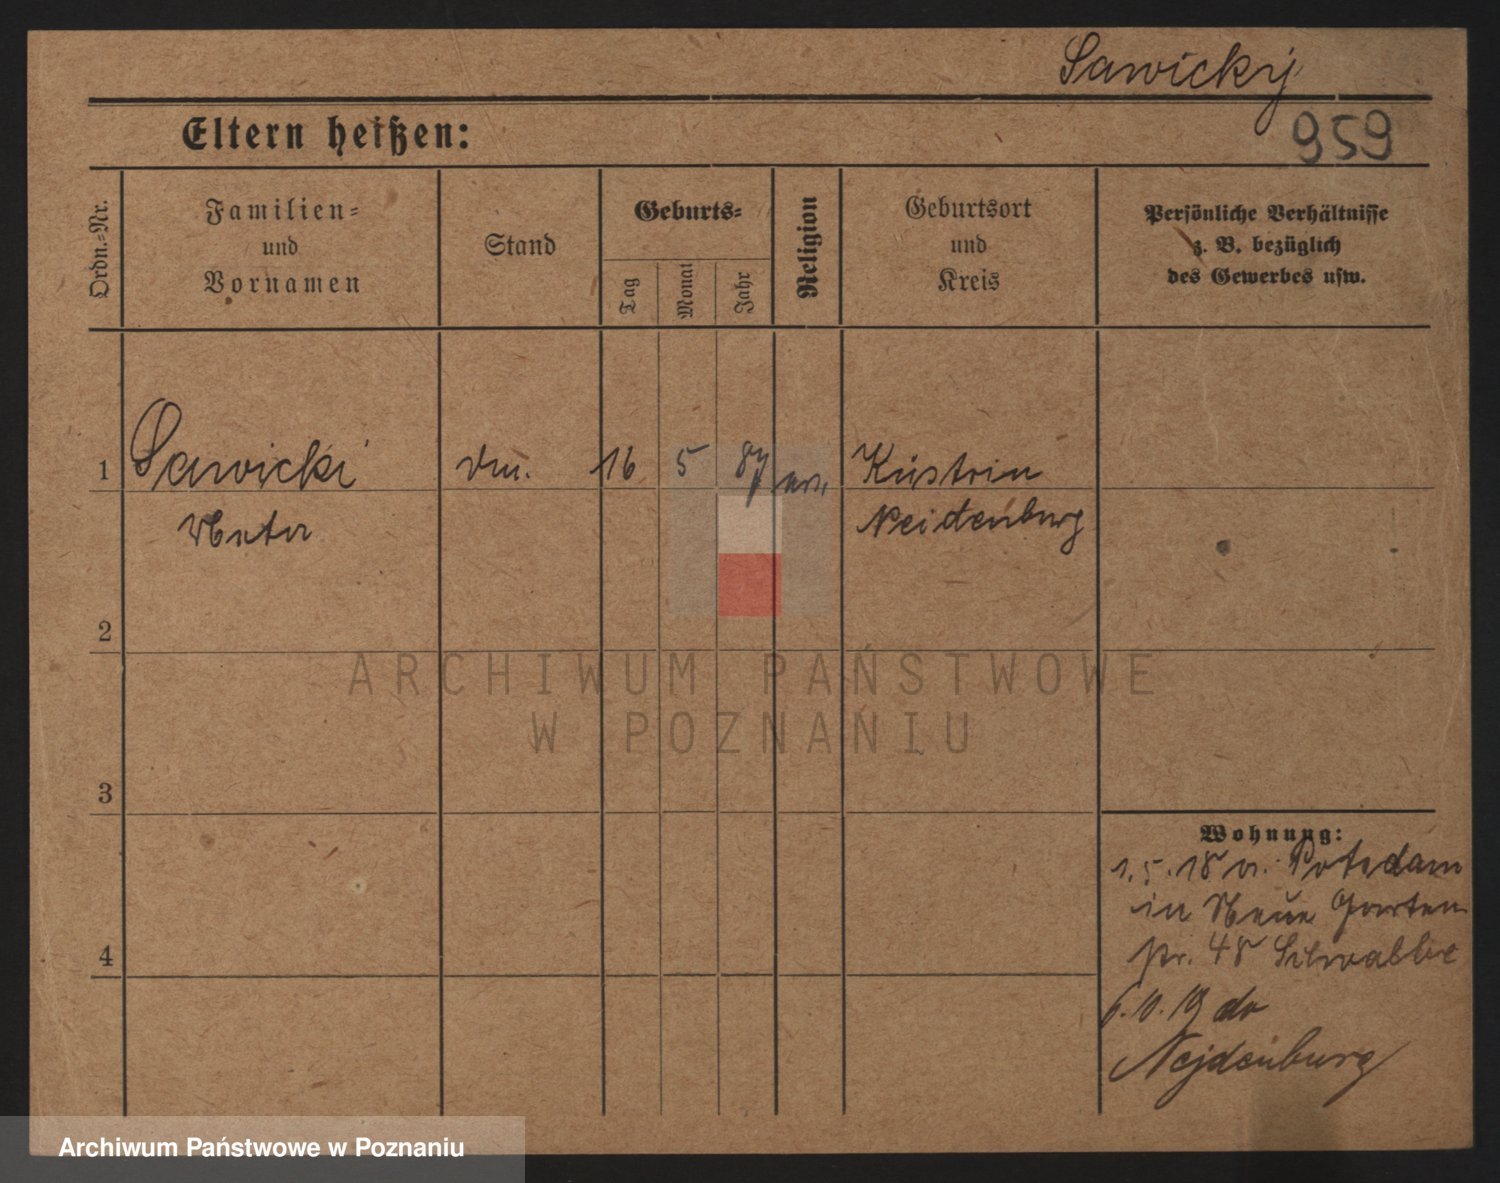 Sawicky
959
Eltern heißen:
Ordn.=Nr.
Familien=
und
Vornamen
Stand
Geburts=
Tag
Monat
Jahr
Religion
Geburtsort
und
Kreis
Persönliche Verhältnisse
z. B. bezüglich
des Gewerbes usw.
1
Sawicki
16
5
87
Küstrin
Neidenburg
2
ARCHIWUM PAŃSTWOWE
W POZNANIU
3
Wohnung:
1.5.18 n. Potsdam
in Neue Garten
str. 48
4
6.10.19
Nejdenburg
Archiwum Państwowe w Poznaniu